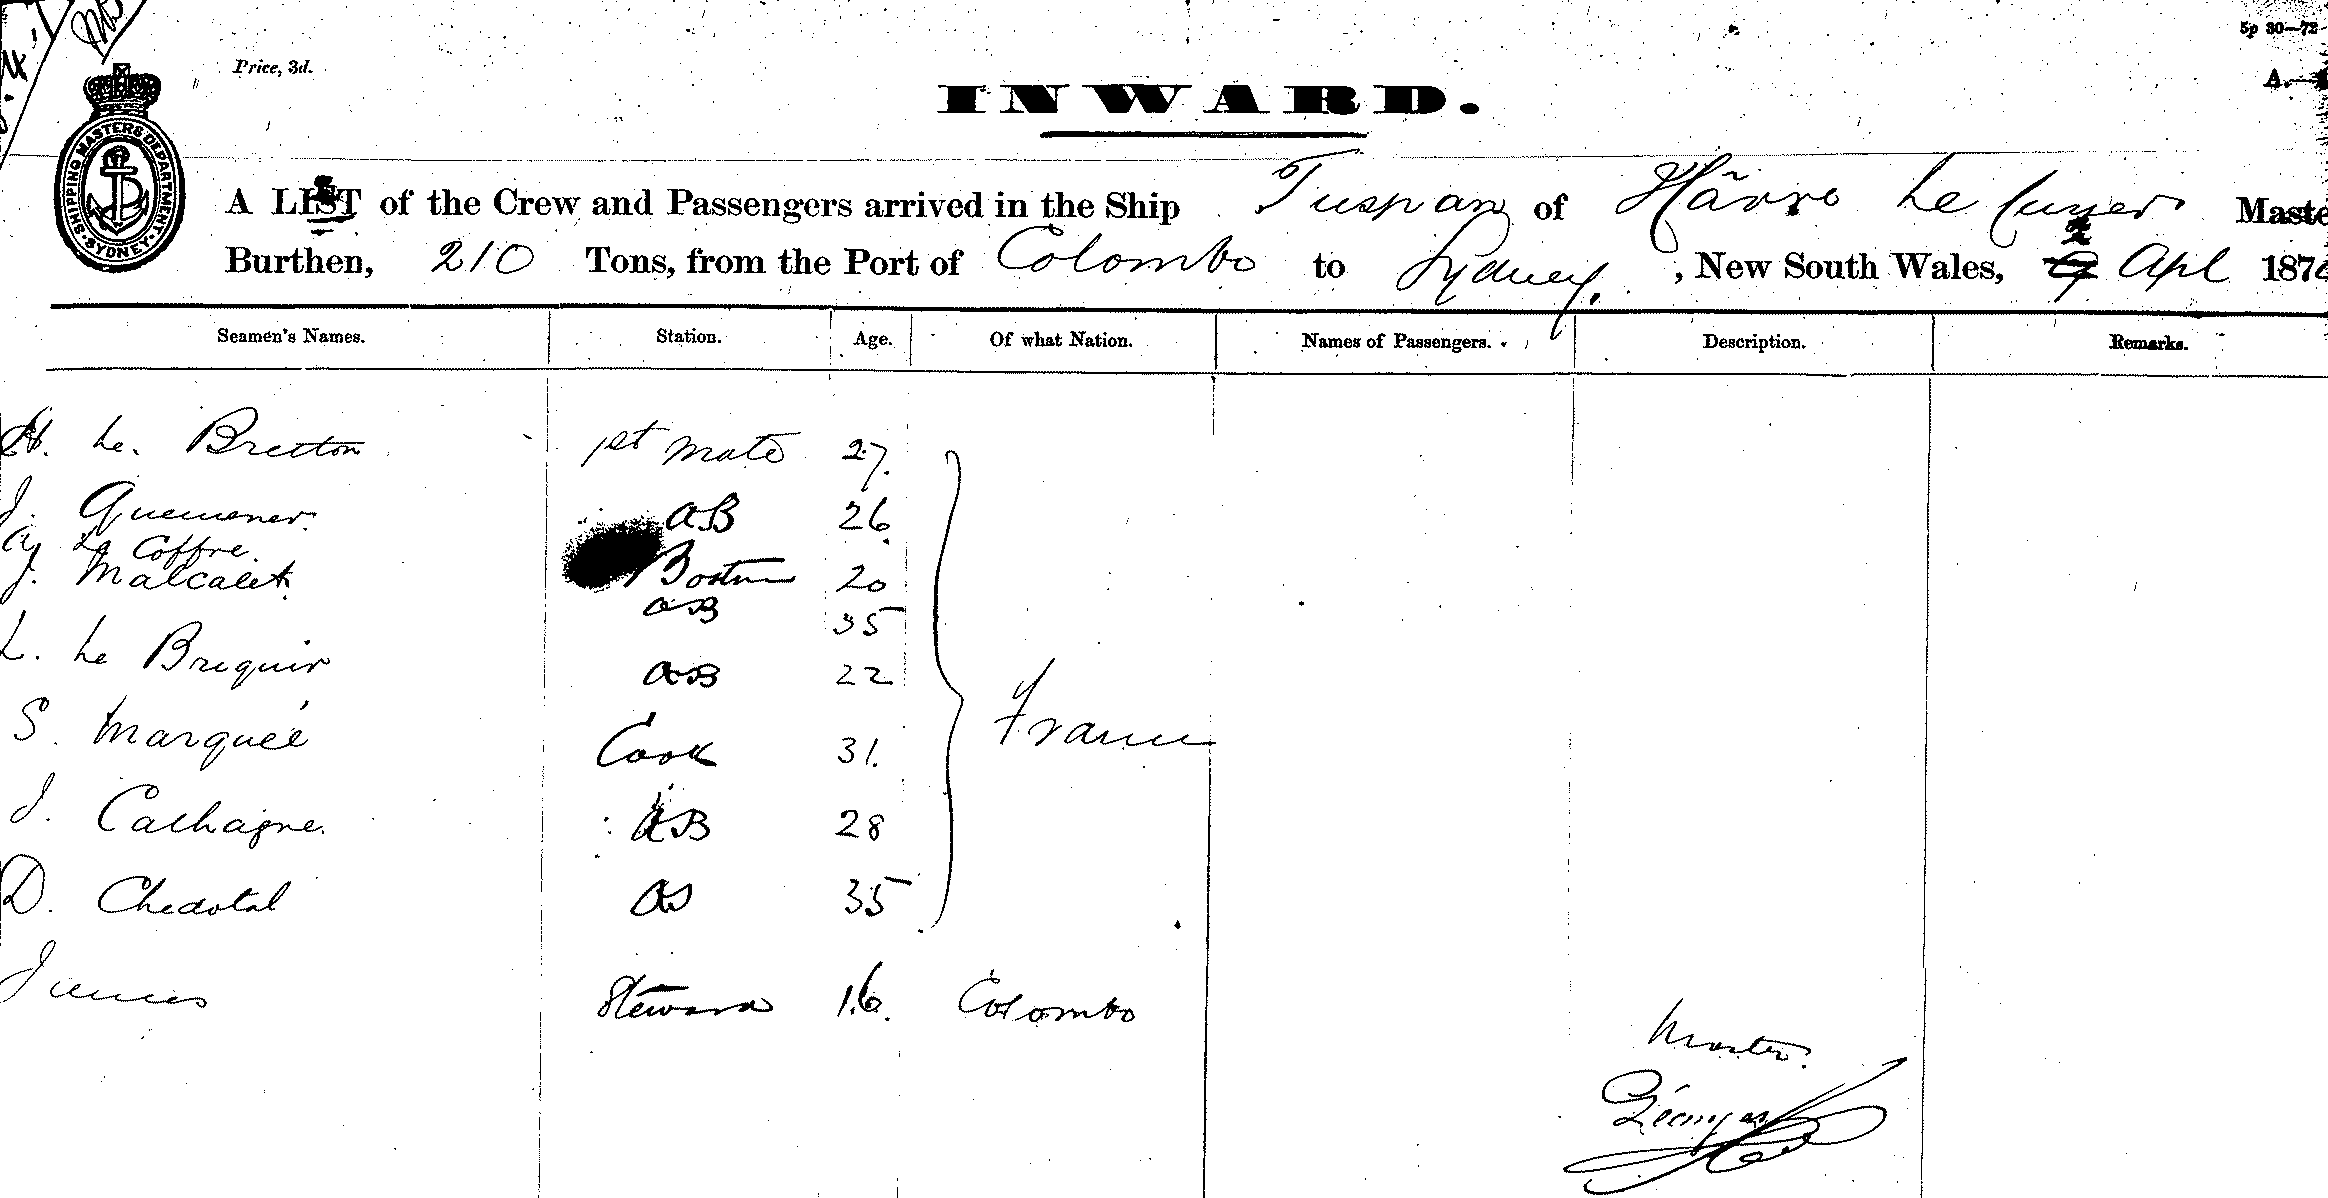 5p 30—72
Price, 3d.
A.—
INWARD.
SHIPPING MASTERS DEPARTMENT · SYDNEY ·
A LIST of the Crew and Passengers arrived in the Ship Tuspan of Hâvre Le Cuyer Maste
Burthen, 210 Tons, from the Port of Colombo to Sydney, New South Wales, 2 Apl 187
Seamen's Names. Station. Age. Of what Nation. Names of Passengers. Description. Remarks.
H. Le. Bretton 1st Mate 27.
J. Quemener. AB 26
Le Coffre. Boatn 20
J. Malcalet. AB 35
L. Le Brequir AB 22
S. Marqueé Cook 31. France
J. Cathagne. AB 28
D. Chedotal OS 35
James Steward 16. Colombo
Master.